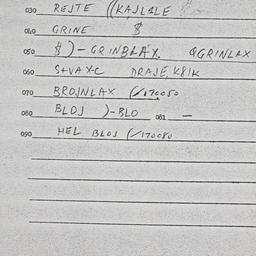 030 REJTE ((KAJLALE
040 GRINE $
050 $ )-GRINBLAX QGRINLAX
060 S+VAXC DRAJE, K8IK
070 BROJNLAX (/170050
080 BLOJ )-BLO 081 —
090 HEL BLOJ (/170080